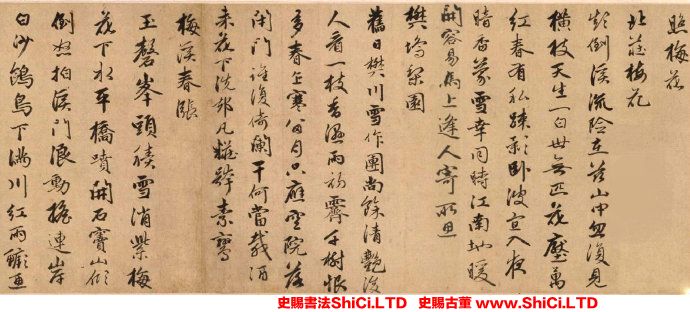 照梅花
北莊梅花
彭倒溪流險在荒山中忽復見
橫枝天生一白世無匹花壓萬
紅春有私疎影臥波宜入夜
暗香蒙雪幸同時江南地暖
開容易馬上逢人寄所思
樊塢梨園
舊日樊川雪作團尚餘清艷後
人看一枝香濕雨初霽千樹恨
多春正寒白日只應空院落
閉門誰復倚闌干何當載酒
來花下洗卻凡糚髻素鸞
梅溪春漲
玉磬峯頭積雪消紫梅
花下水平橋噴開石竇山傾
倒怒拍溪門浪動搖連岸
白沙鷗鳥下滿川紅雨
史賜書法ShiCi.LTD 史賜古董 www.ShiCi.LTD